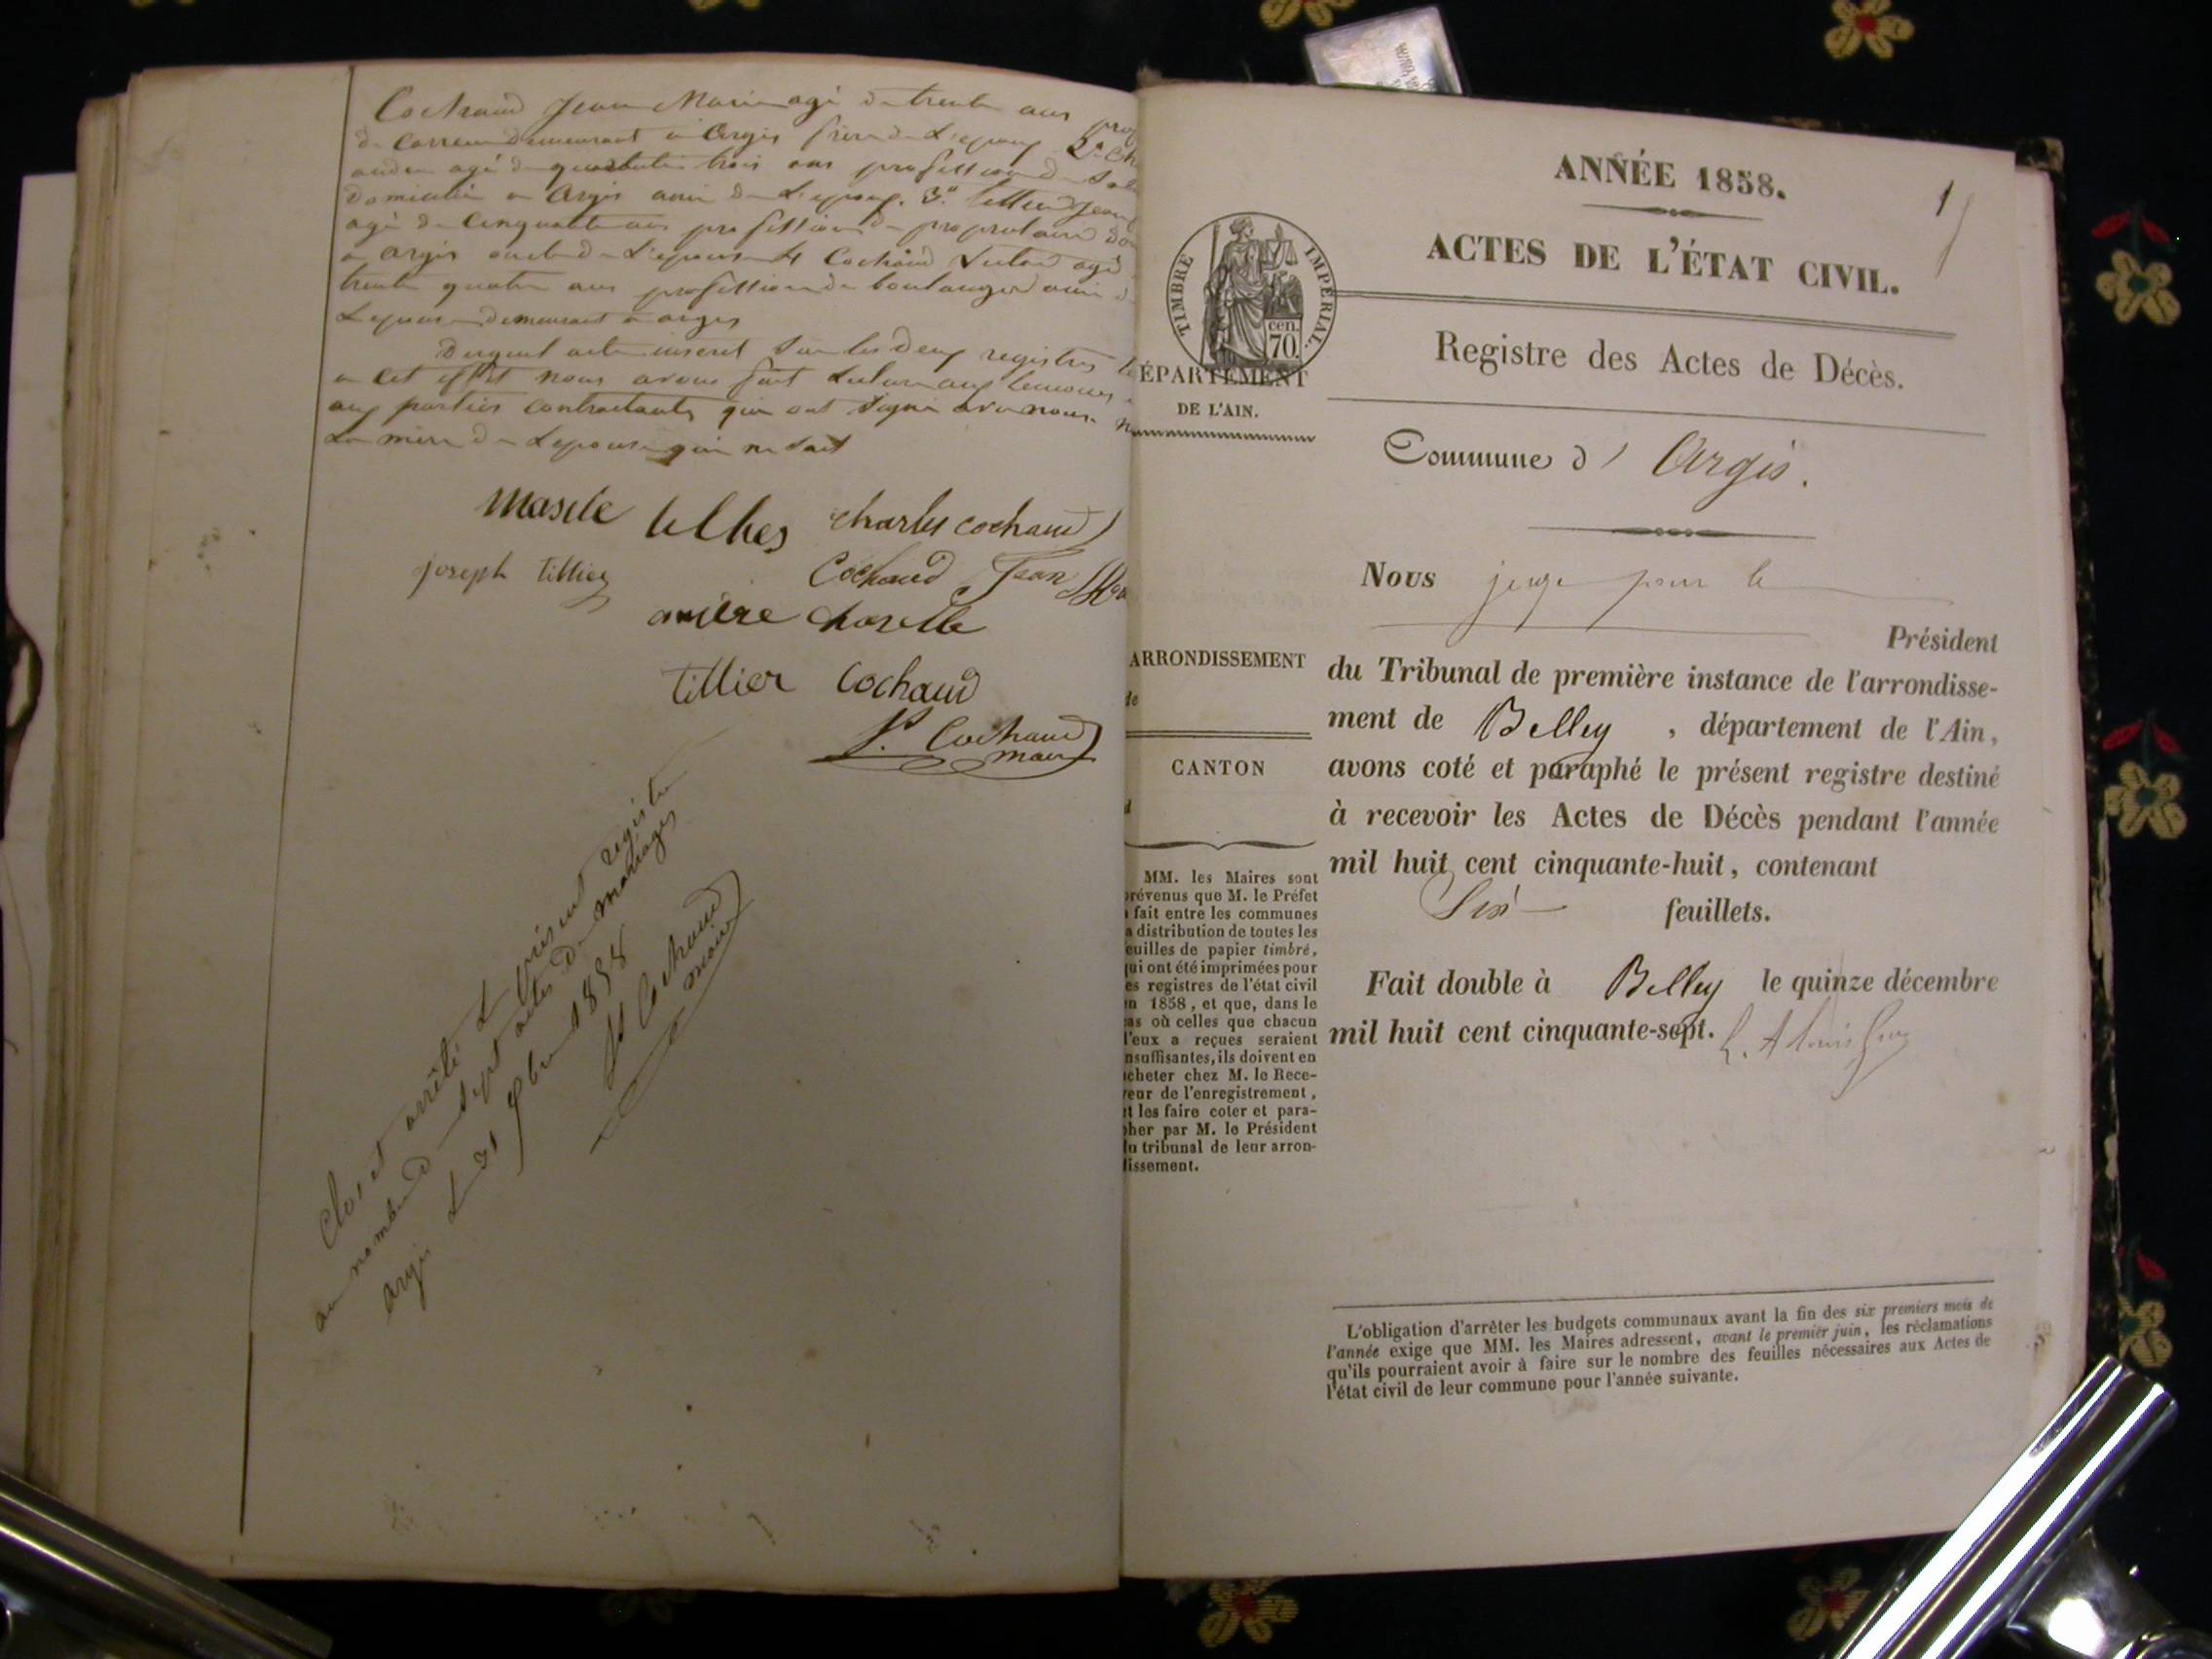 Cochaud Jean Marie agé de trente ans
demeurant à Argis frère de L'epoux 2°
agé de quarante trois ans profession de
domicilié a Argis ami de L'epoux. 3°
agé de cinquante ans profession de propriétaire
a argis oncle de L'epouse 4 Cochaud agé
trente quatre ans profession de boulanger ami
L'epouse demeurant a argis
Duquel acte inseret Sur les deux registres
a cet effet nous avons fait Lecture aux temoins
aux parties contractantes qui ont signé avec nous
La mere de L'epouse qui ne sait
charles cochaud
joseph tillier
Cochaud Jean
tillier Cochaud
Cochaud
maire
Clos et arrêté Le présent registre
au nombre de sept actes de mariages
argis Le 31 1858
Cochaud
maire
ANNÉE 1858.
1
ACTES DE L'ÉTAT CIVIL.
TIMBRE IMPÉRIAL.
cen.
70.
Registre des Actes de Décès.
ÉPARTEMENT
DE L'AIN.
Commune d' Argis.
Nous juge pour le
Président
ARRONDISSEMENT
du Tribunal de première instance de l'arrondisse-
ment de Belley , département de l'Ain,
avons coté et paraphé le présent registre destiné
à recevoir les Actes de Décès pendant l'année
mil huit cent cinquante-huit, contenant
Six feuillets.
Fait double à Belley le quinze décembre
mil huit cent cinquante-sept.
CANTON
MM. les Maires sont
prévenus que M. le Préfet
a fait entre les communes
a distribution de toutes les
euilles de papier timbré,
qui ont été imprimées pour
es registres de l'état civil
n 1858, et que, dans le
as où celles que chacun
d'eux a reçues seraient
nsuffisantes, ils doivent en
acheter chez M. le Rece-
veur de l'enregistrement,
et les faire coter et para-
pher par M. le Président
du tribunal de leur arron-
dissement.
L'obligation d'arrêter les budgets communaux avant la fin des six premiers mois de
l'année exige que MM. les Maires adressent, avant le premier juin, les réclamations
qu'ils pourraient avoir à faire sur le nombre des feuilles nécessaires aux Actes de
l'état civil de leur commune pour l'année suivante.